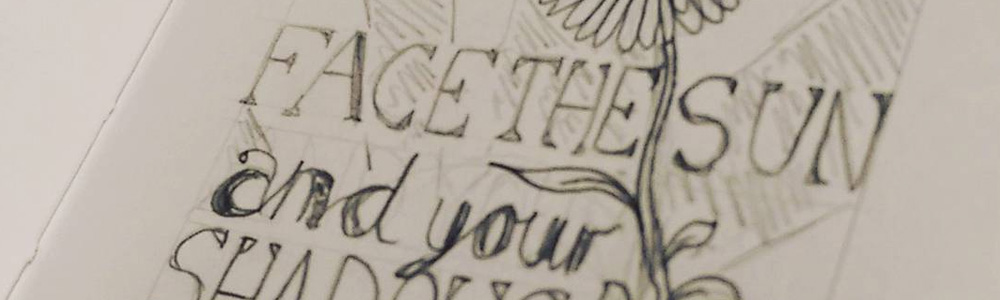 FACE THE SUN
and your